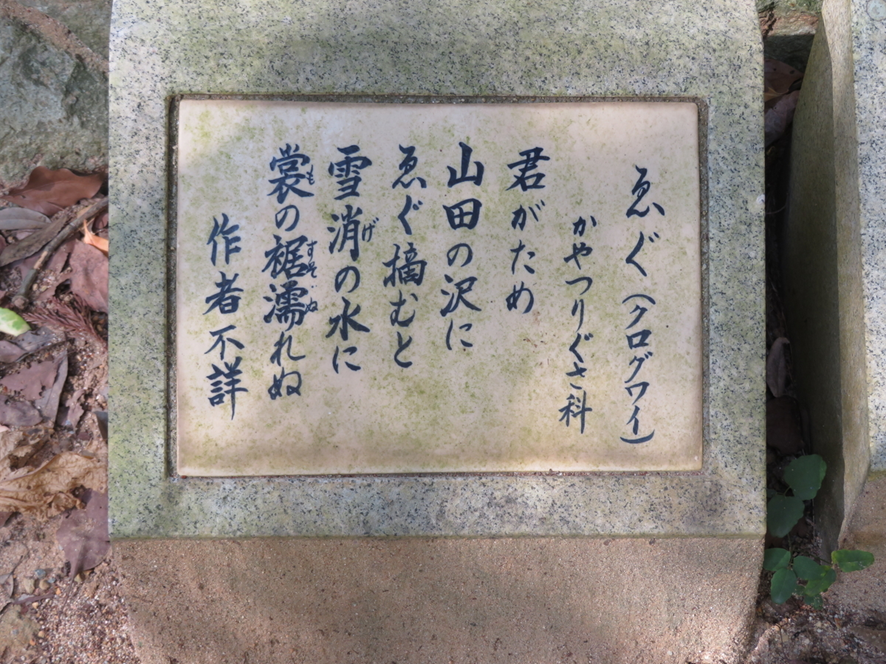 ゑぐ(クログワイ)
かやつりぐさ科
君がため
山田の沢に
ゑぐ摘むと
雪消の水に
げ
裳の裾濡れぬ
も すそ ぬ
作者不詳